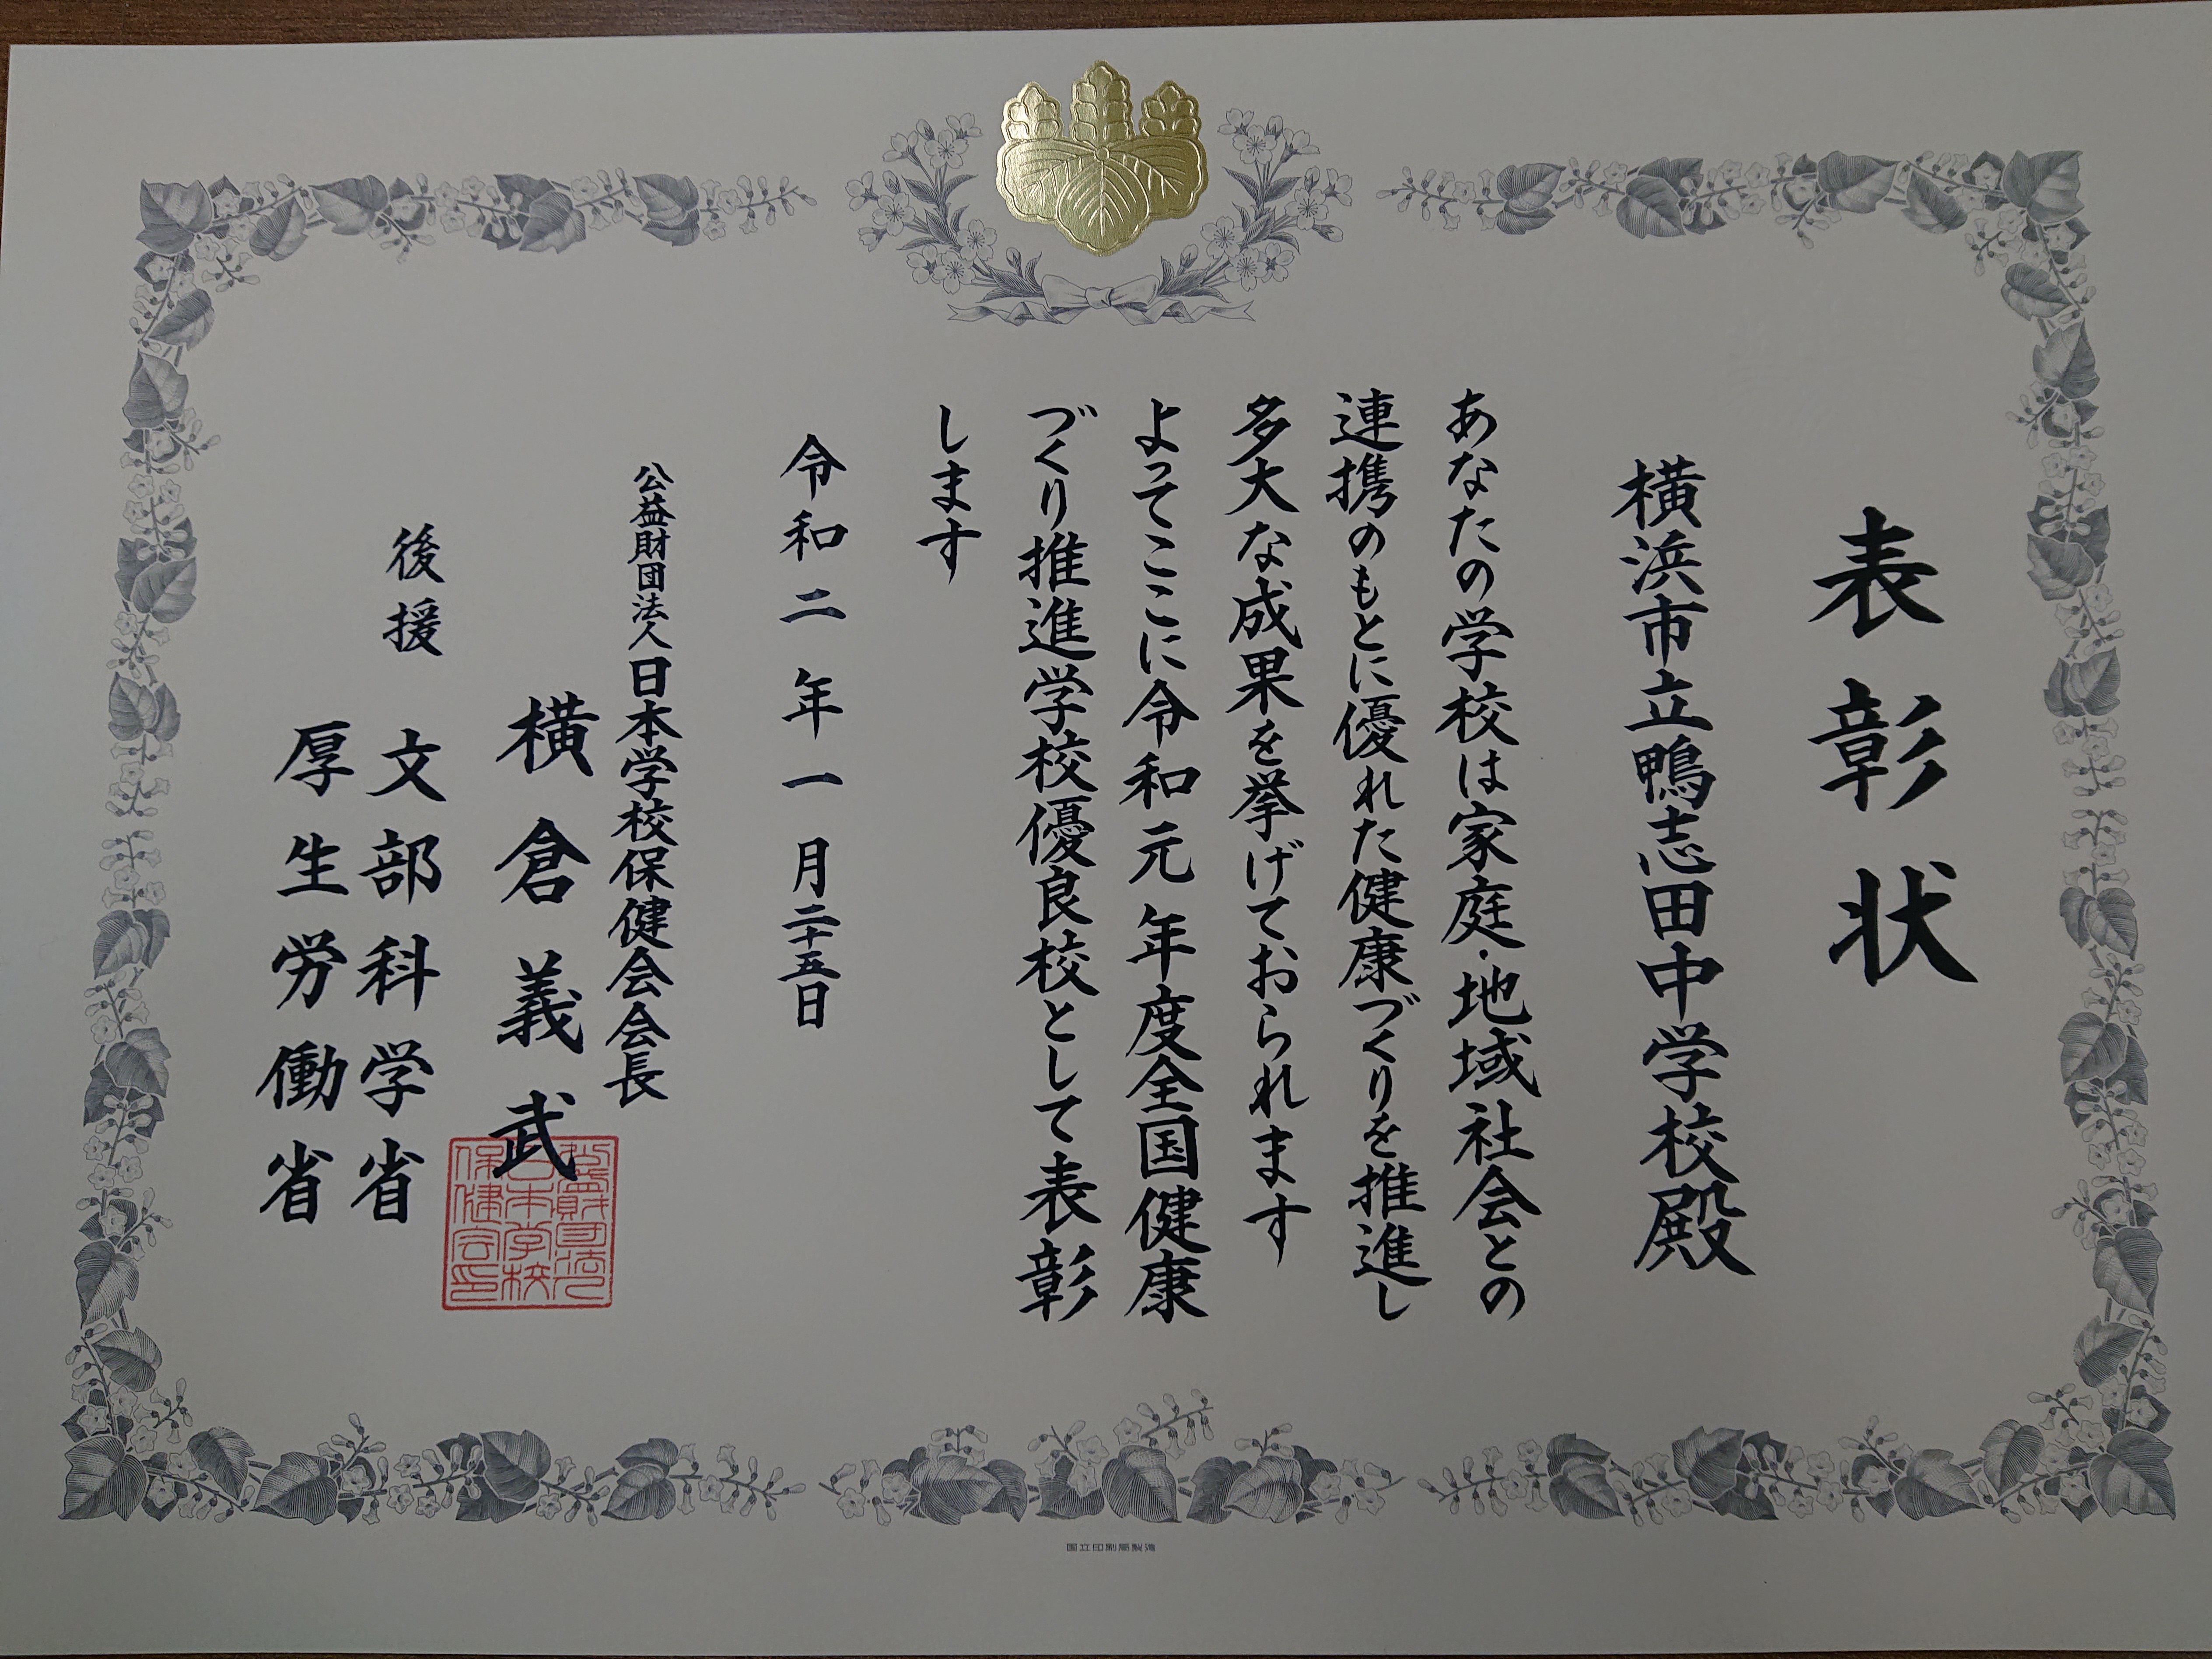 表彰状
横浜市立鴨志田中学校殿
あなたの学校は家庭・地域社会との
連携のもとに優れた健康づくりを推進し
多大な成果を挙げておられます
よってここに令和元年度全国健康
づくり推進学校優良校として表彰
します
令和二年一月二十五日
公益財団法人日本学校保健会会長
横倉義武
公益財団法人日本学校保健会印
後援 文部科学省
厚生労働省
国立印刷局製造